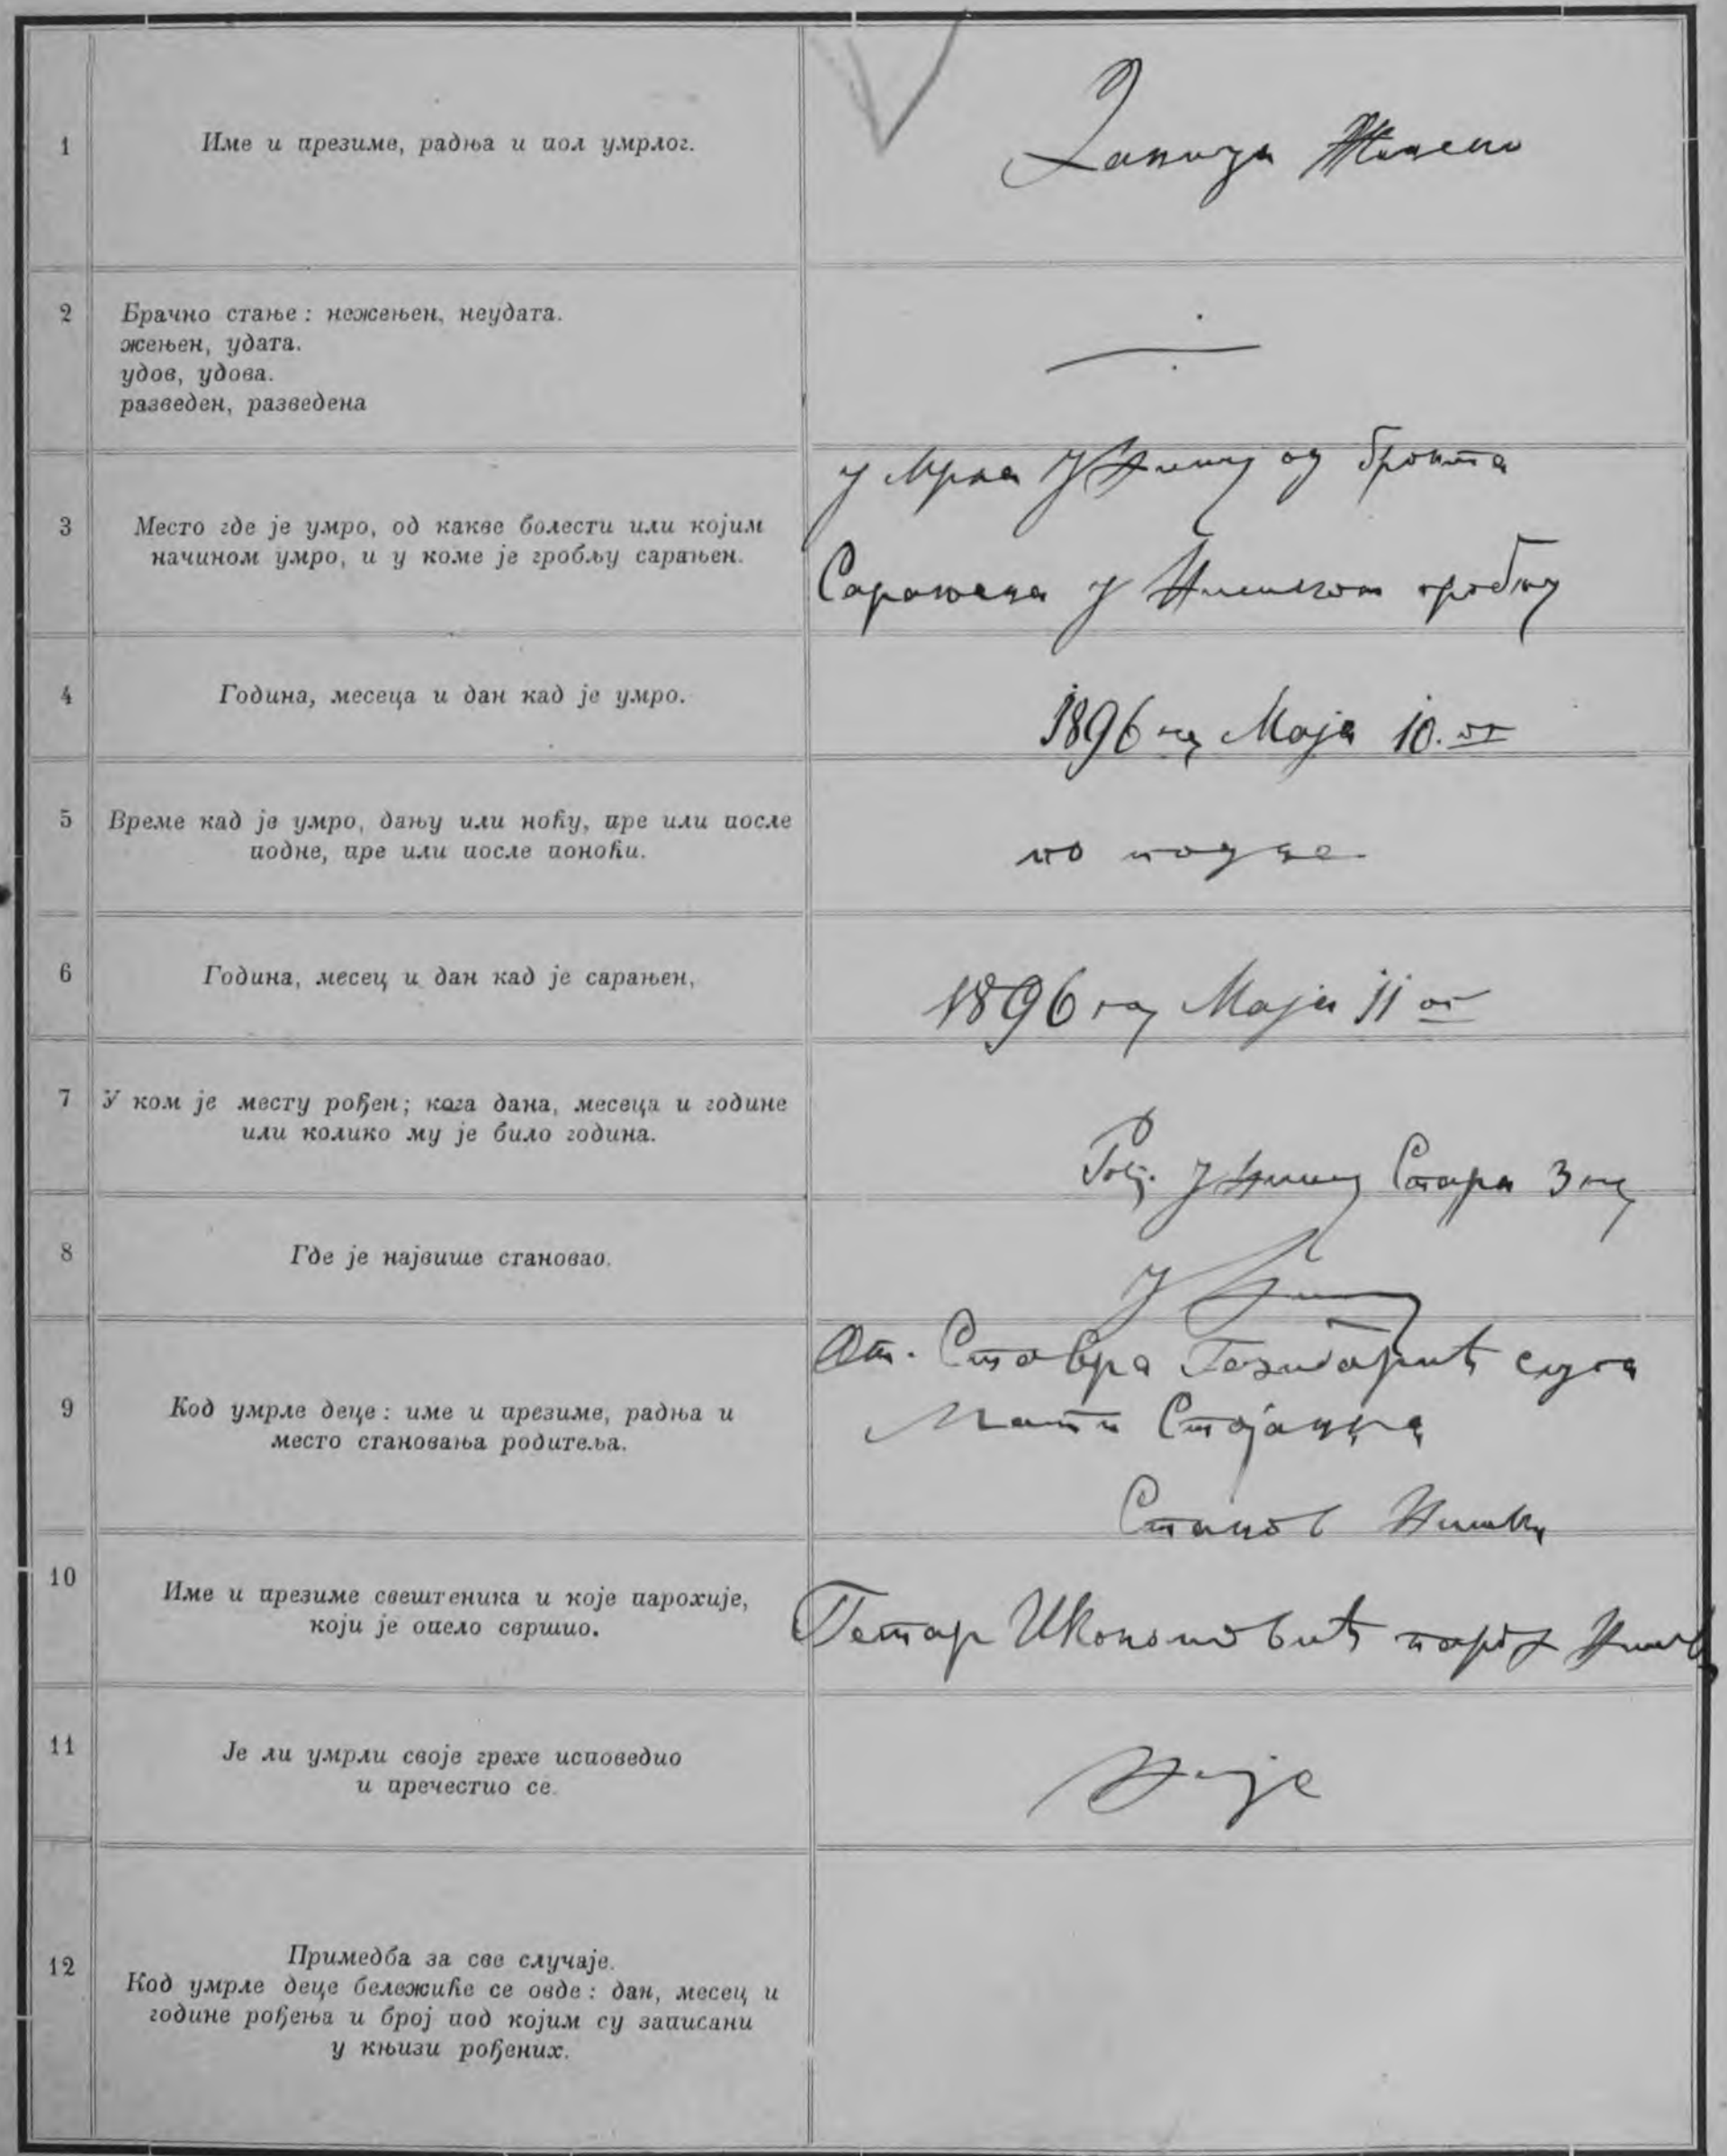 1
Име и презиме, радња и пол умрлог.
Женско
2
Брачно стање: нежењен, неудата.
жењен, удата.
удов, удова.
разведен, разведена
3
Место где је умро, од какве болести или којим
начином умро, и у коме је гробљу сарањен.
умрла у Нишу од
Сарањена у Нишком гробљу
4
Година, месеца и дан кад је умро.
1896 год Маја 10.ог
5
Време кад је умро, дању или ноћу, пре или после
подне, пре или после поноћи.
по подне
6
Година, месец и дан кад је сарањен,
1896 год Маја 11 ог
7
У ком је месту рођен; кога дана, месеца и године
или колико му је било година.
Рођ. у Нишу Стара 3 год
8
Где је највише становао.
У Нишу
9
Код умрле деце: име и презиме, радња и
место становања родитеља.
От. Ставра слуга
Мати Стојанка
Станов Нишки
10
Име и презиме свештеника и које парохије,
који је опело свршио.
Петар Икономовић парох Нишки
11
Је ли умрли своје грехе исповедио
и пречестио се.
Није
12
Примедба за све случаје.
Код умрле деце бележиће се овде: дан, месец и
године рођења и број под којим су записани
у књизи рођених.